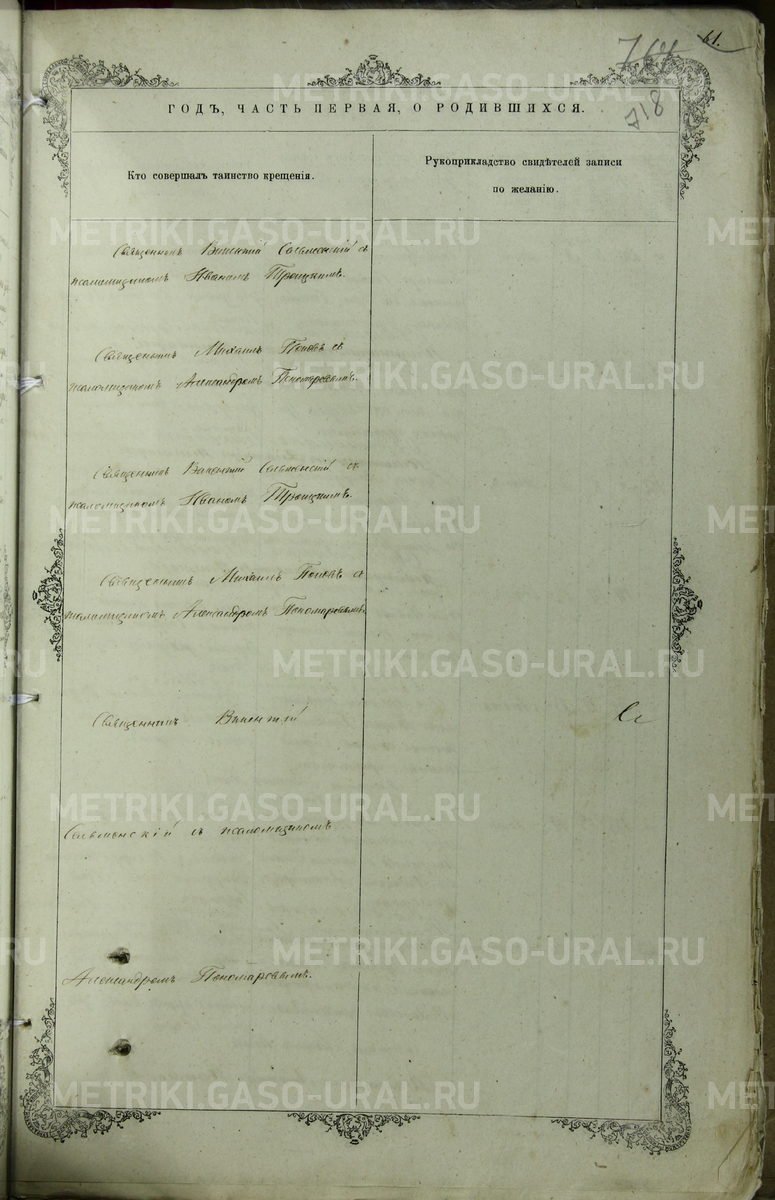 61.
764
718
ГОДЪ, ЧАСТЬ ПЕРВАЯ, О РОДИВШИХСЯ.
Кто совершалъ таинство крещенія.
Рукоприкладство свидѣтелей записи
по желанію.
Священникъ Викентій съ
псаломщикомъ Иваномъ Троицкимъ.
Священникъ Михаилъ Поповъ съ
псаломщикомъ Александромъ Пономаревымъ.
Священникъ Викентій съ
псаломщикомъ Иваномъ Троицкимъ.
Священникъ Михаилъ Поповъ съ
псаломщикомъ Александромъ Пономаревымъ.
Священникъ Викентій
съ псаломщикомъ
Александромъ Пономаревымъ.
METRIKI.GASO-URAL.RU